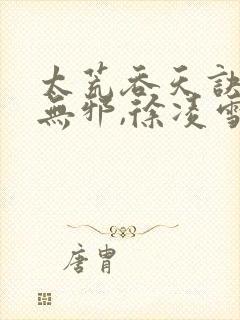 太荒吞天訣
無邪,徐凌雪
唐胄